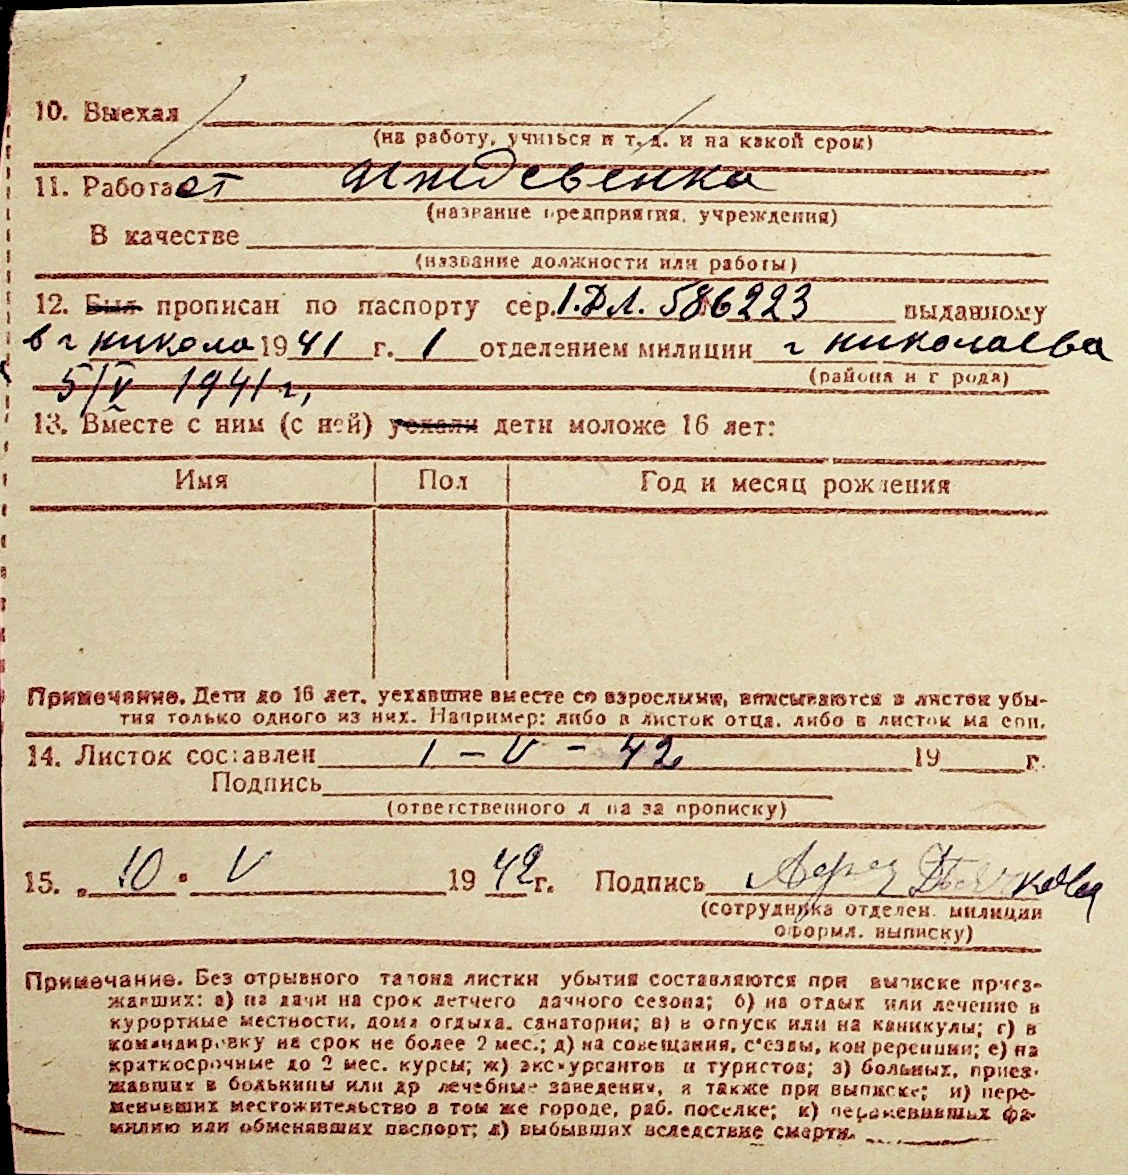 10. Выехал
(на работу, учиться и т. д. и на какой срок)
11. Работает иждевенка
(название предприятия, учреждения)
В качестве
(название должности или работы)
12. Был прописан по паспорту сер. 1.ДЛ. 586223 выданному
в г никола 1941 г. 1 отделением милиции г николаева
(района и города)
5/V 1941 г,
13. Вместе с ним (с ней) уехали дети моложе 16 лет:
Имя Пол Год и месяц рождения
Примечание. Дети до 16 лет, уехавшие вместе со взрослыми, вписываются в листок убы-
тия только одного из них. Например: либо в листок отца, либо в листок матери.
14. Листок составлен 1 – V – 42 19 г.
Подпись
(ответственного лица за прописку)
15. „ 10 " V 1942 г. Подпись
(сотрудника отделен. милиции
оформл. выписку)
Примечание. Без отрывного талона листки убытия составляются при выписке приез-
жавших: а) на дачи на срок летнего дачного сезона; б) на отдых или лечение в
курортные местности, дома отдыха, санатории; в) в отпуск или на каникулы; г) в
командировку на срок не более 2 мес.; д) на совещания, с'езды, конференции; е) на
краткосрочные до 2 мес. курсы; ж) экскурсантов и туристов; з) больных, приез-
жавших в больницы или др лечебные заведения, а также при выписке; и) пере-
менивших местожительство в том же городе, раб. поселке; к) переменивших фа-
милию или обменявших паспорт; л) выбывших вследствие смерти.